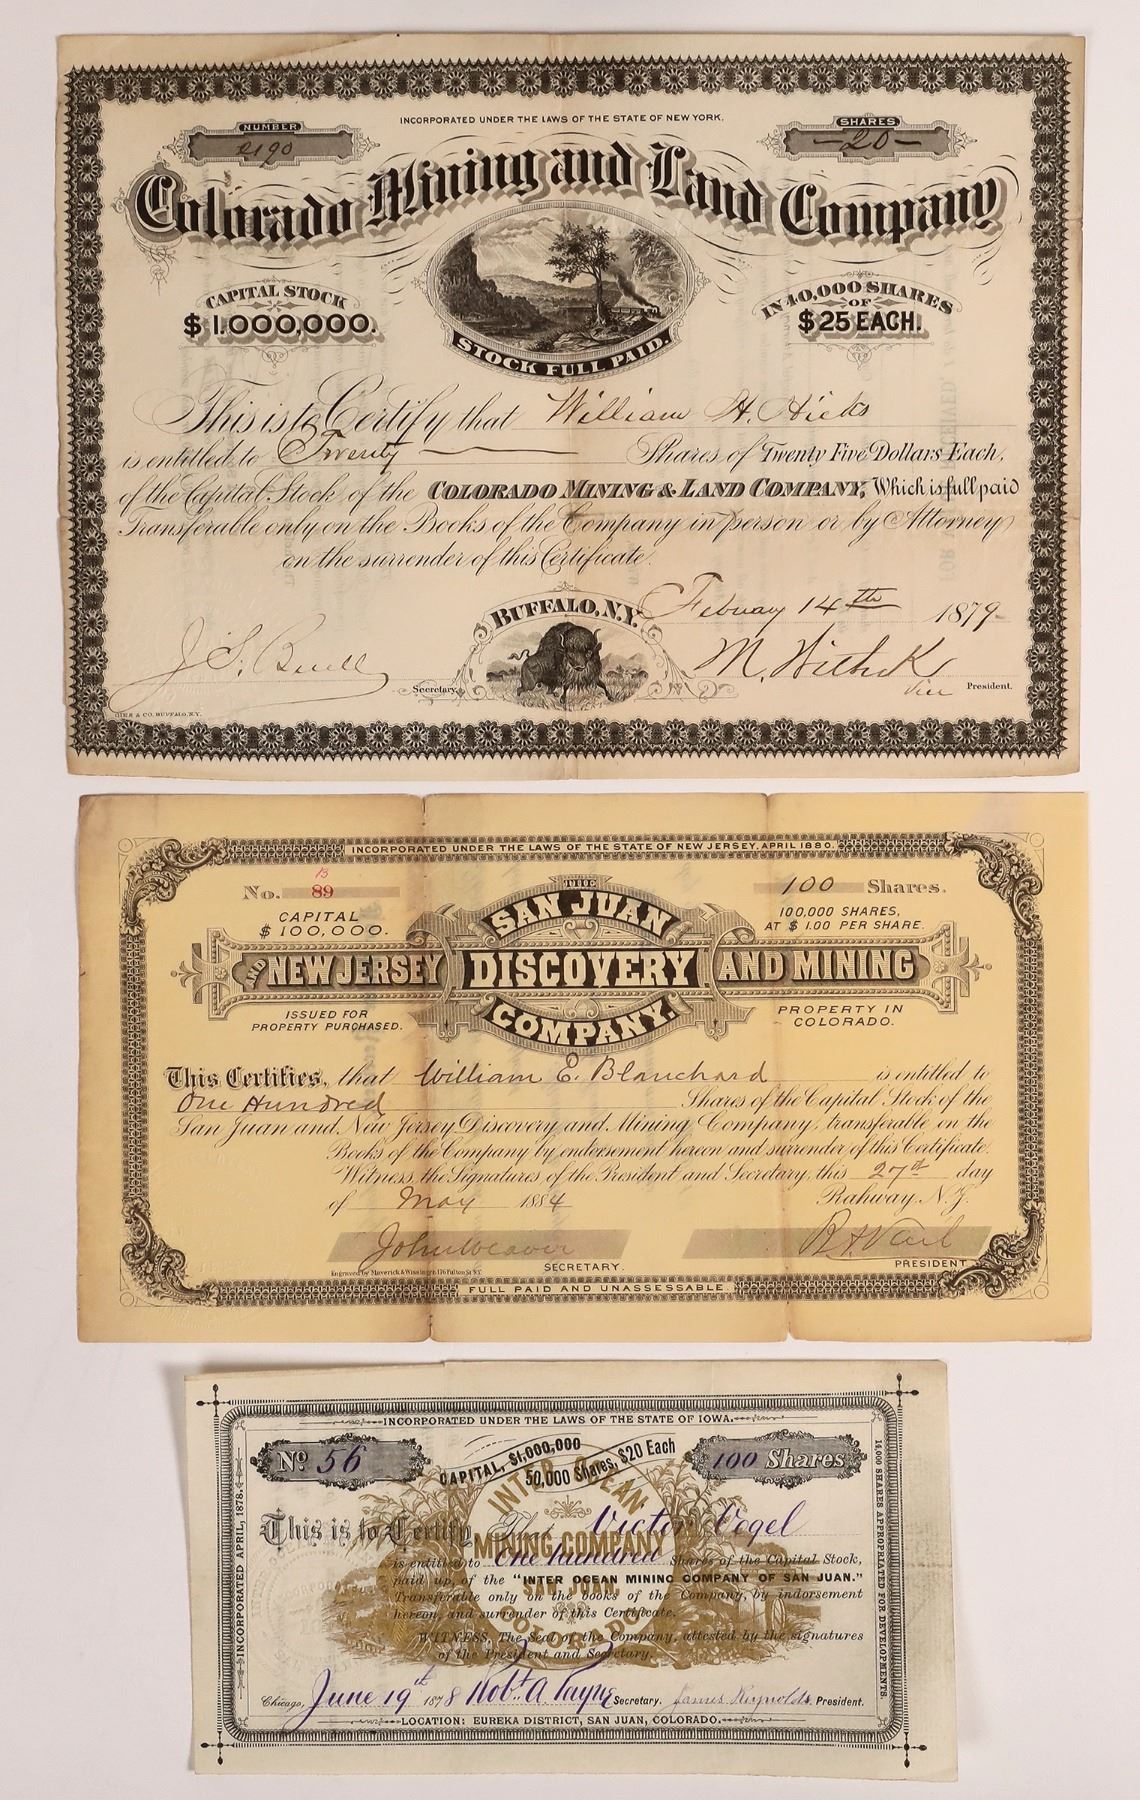 INCORPORATED UNDER THE LAWS OF THE STATE OF NEW YORK.
NUMBER
2190
SHARES
—20—
Colorado Mining and Land Company
CAPITAL STOCK
$1,000,000.
IN 40,000 SHARES
OF
$25 EACH.
STOCK FULL PAID.
This is to Certify that William H. Hicks
is entitled to Twenty Shares of Twenty Five Dollars Each,
of the Capital Stock of the COLORADO MINING & LAND COMPANY, Which is full paid
Transferable only on the Books of the Company in person or by Attorney
on the surrender of this Certificate.
BUFFALO, N.Y. Febuary 14th 1879
J. S. Buell Secretary.
Vice President.
& CO. BUFFALO, N.Y.
INCORPORATED UNDER THE LAWS OF THE STATE OF NEW JERSEY, APRIL 1880.
No. B 89
100 Shares.
CAPITAL
$100,000.
100,000 SHARES,
AT $1.00 PER SHARE.
THE
SAN JUAN
AND NEW JERSEY DISCOVERY AND MINING
COMPANY.
ISSUED FOR
PROPERTY PURCHASED.
PROPERTY IN
COLORADO.
This Certifies, that William E. Blanchard is entitled to
One Hundred Shares of the Capital Stock of the
San Juan and New Jersey Discovery and Mining Company, transferable on the
Books of the Company by endorsement hereon and surrender of this Certificate.
Witness, the Signatures of the President and Secretary, this 27th day
of May 1884 Rahway, N.J.
John Weaver
SECRETARY.
R H Vail
PRESIDENT
Engraved by Maverick & Wissinger, 176 Fulton St. N.Y.
FULL PAID AND UNASSESSABLE.
INCORPORATED UNDER THE LAWS OF THE STATE OF IOWA.
No. 56
CAPITAL, $1,000,000
50,000 Shares, $20 Each
100 Shares
INTER OCEAN
MINING COMPANY
SAN JUAN,
COLORADO
This is to Certify That Victor Vogel
is entitled to One hundred Shares of the Capital Stock,
paid up, of the "INTER OCEAN MINING COMPANY OF SAN JUAN."
Transferable only on the books of the Company, by indorsement
hereon, and surrender of this Certificate.
WITNESS, The Seal of the Company, attested by the signatures
of the President and Secretary.
Chicago, June 19th 1878 Robt. A. Payne Secretary. James Reynolds, President.
LOCATION: EUREKA DISTRICT, SAN JUAN, COLORADO.
INCORPORATED APRIL, 1878.
14,000 SHARES APPROPRIATED FOR DEVELOPMENTS.